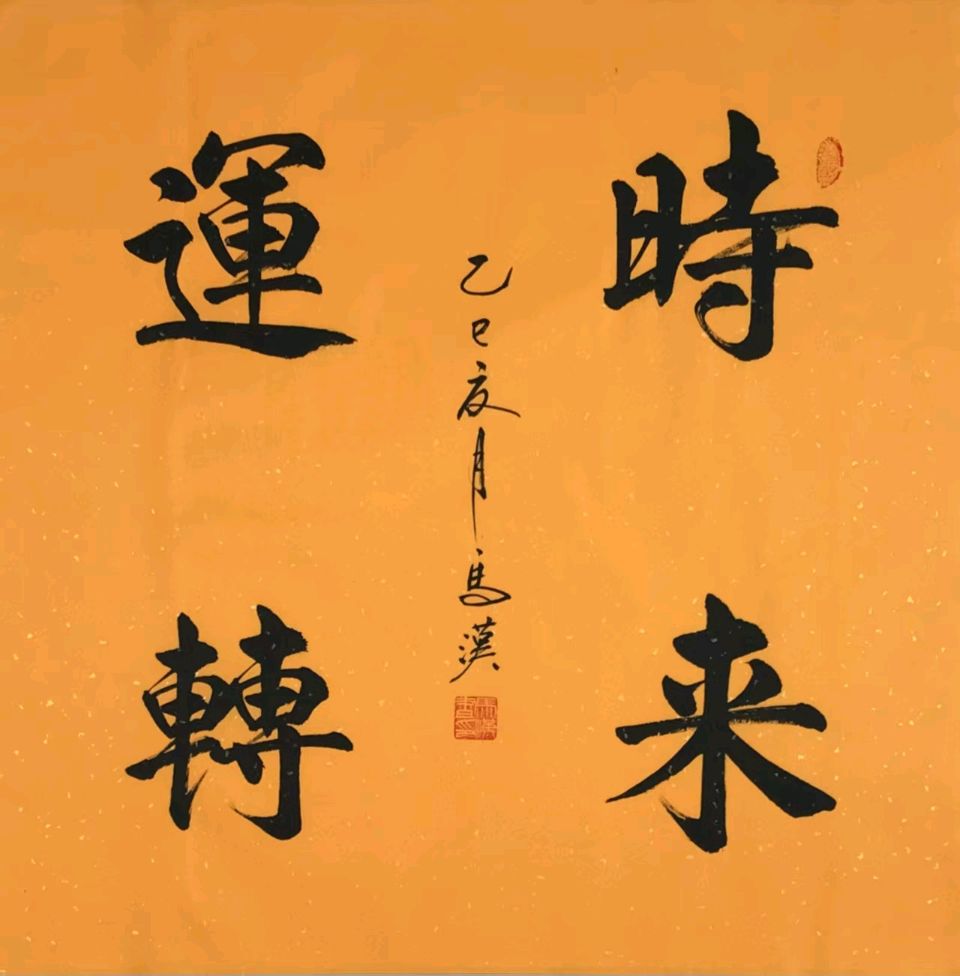 時来
運轉
乙巳夜月馬漢